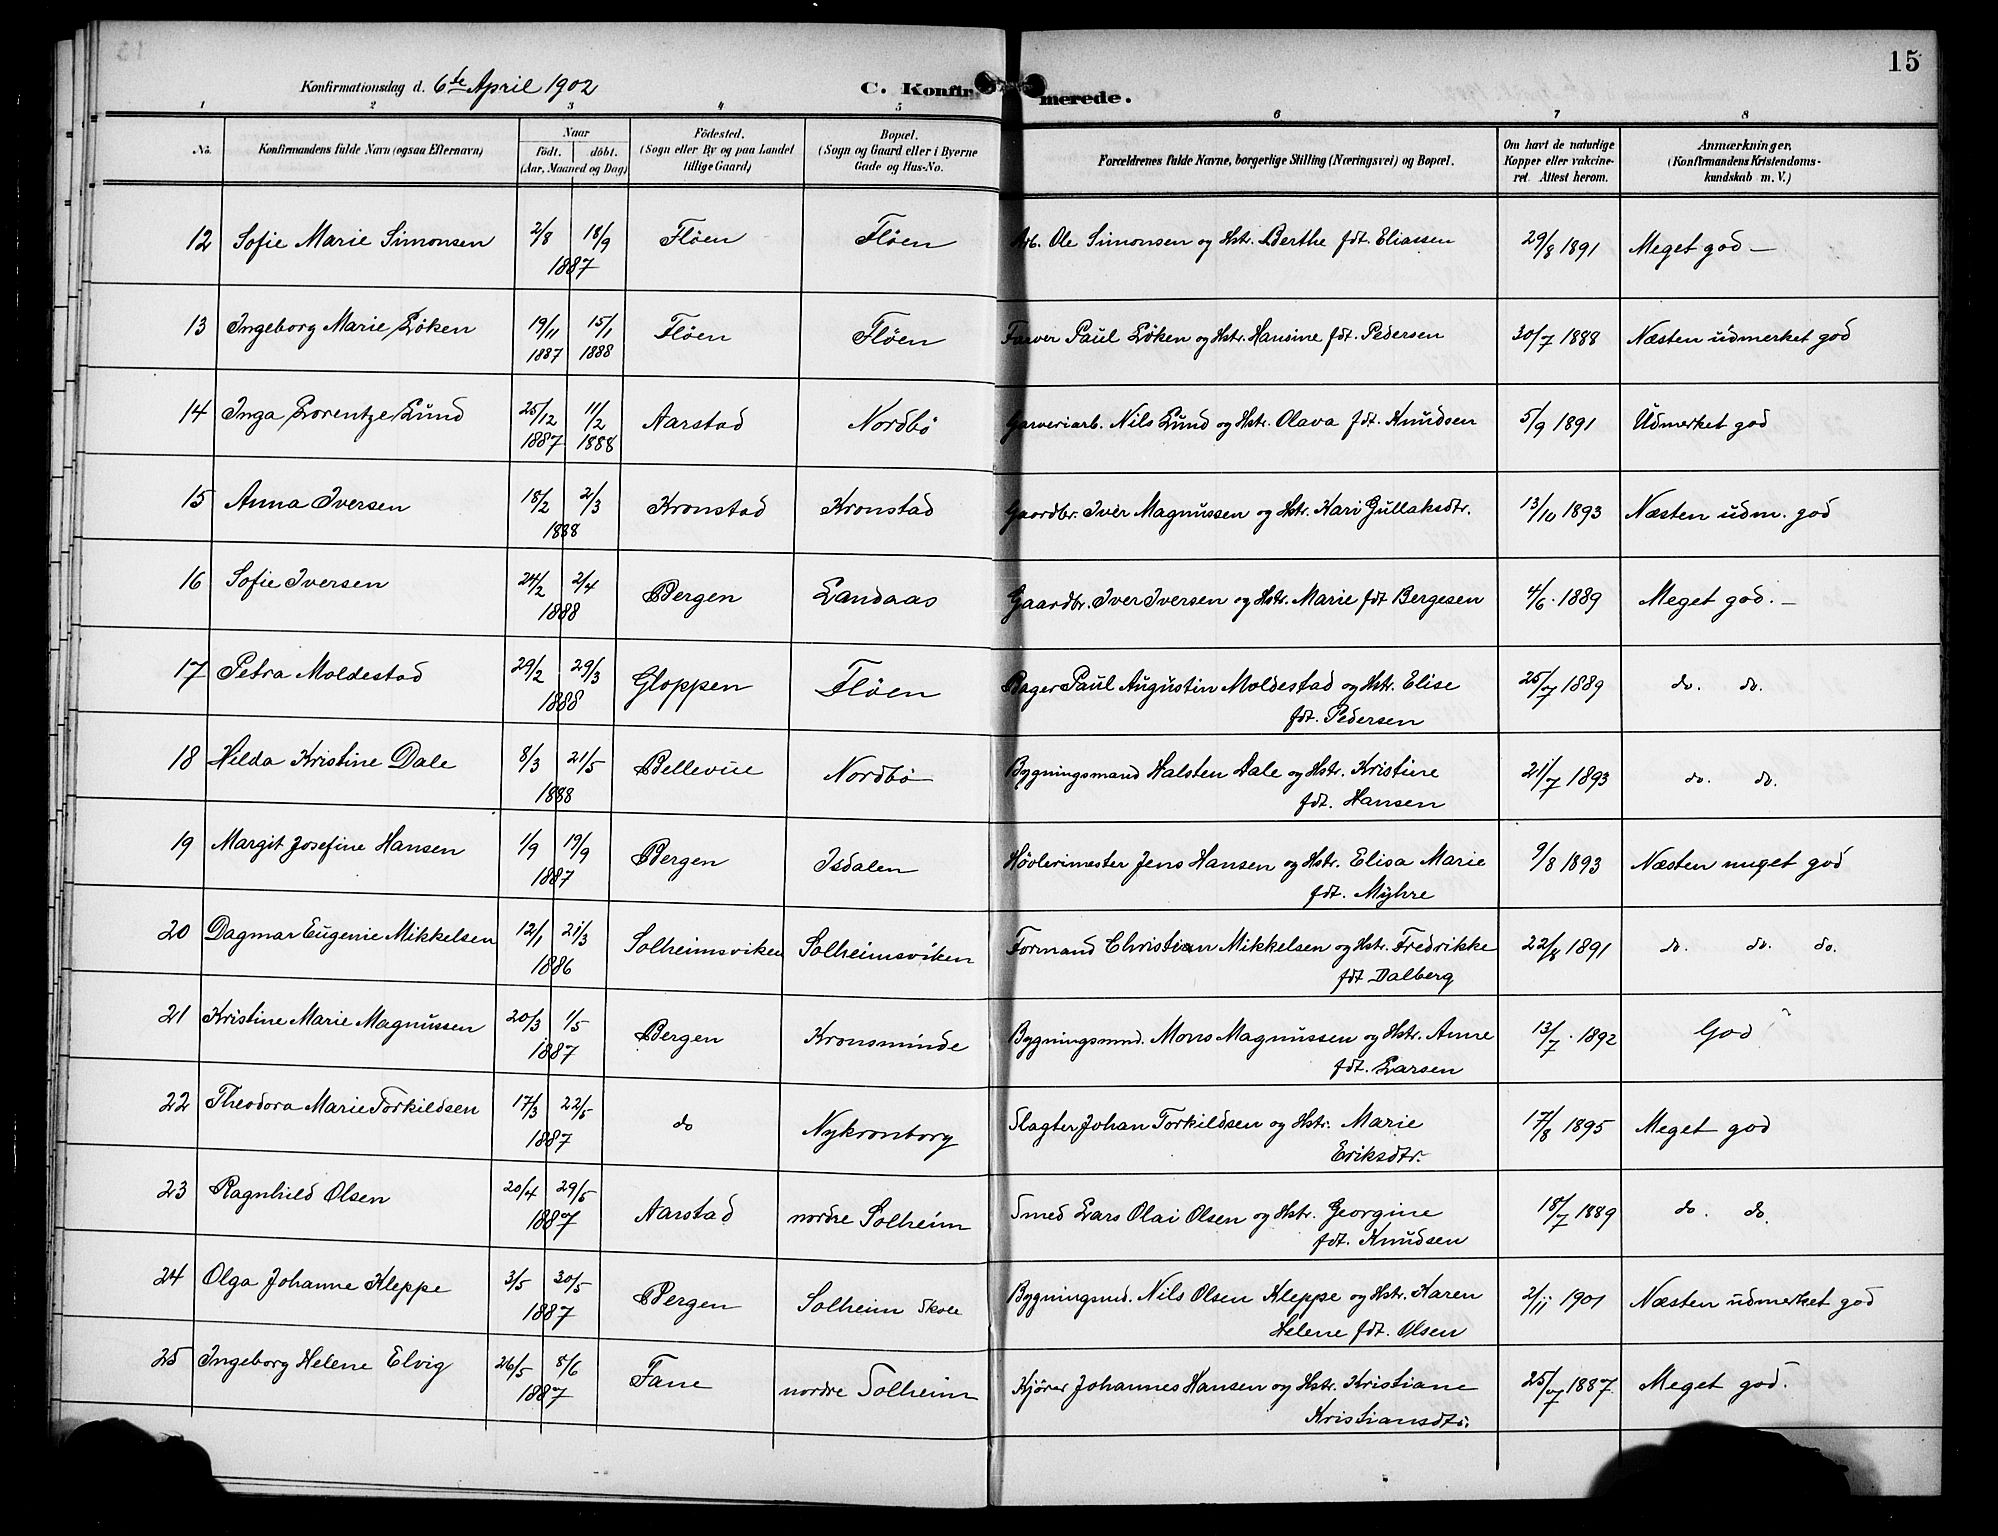 15
Konfirmationsdag d. 6te April 1902 C. Konfirmerede.
1 2 3 4 5 6 7 8
No. Konfirmandens fulde Navn (ogsaa Efternavn) Naar födt. döbt. (Aar, Maaned og Dag) Födested. (Sogn eller By og paa Landet tillige Gaard) Bopæl. (Sogn og Gaard eller i Byerne Gade og Hus-No. Forældrenes fulde Navne, borgerlige Stilling (Næringsvei) og Bopæl. Om havt de naturlige Kopper eller vakcineret. Attest herom. Anmærkninger, (Konfirmandens Kristendomskundskab m. V.)
12 Sofie Marie Simonsen 2/8 18/9 1887 Fløen Fløen Arb. Ole Simonsen og Hstr. Berthe fdt. Eliassen 29/8 1891 Meget god —
13 Ingeborg Marie Løken 19/11 1887 15/1 1888 Fløen Fløen Farver Paul Løken og Hstr. Hansine fdt. Pedersen 30/7 1888 Næsten udmerket god
14 Inga Lorentze Lund 25/12 1887 11/2 1888 Aarstad Nordbø Garveriarb. Nils Lund og Hstr. Olava fdt. Knudsen 5/9 1891 Udmerket god
15 Anna Iversen 18/2 2/3 1888 Kronstad Kronstad Gaardbr. Iver Magnussen og Hstr. Kari Gullaksdtr. 13/10 1893 Næsten udm. god
16 Sofie Iversen 24/2 2/4 1888 Bergen Landaas Gaardbr. Iver Iversen og Hstr. Marie fdt Bergesen 4/6. 1889 Meget god. —
17 Petra Moldestad 29/2 29/3 1888 Gloppen Fløen Bager Paul Augustin Moldestad og Hstr. Elise 25/7 1889 do. do.
fdt. Pedersen
18 Helda Kristine Dale 8/3 21/5 1888 Bellevue Nordbø Bygningsmand Halsten Dale og Hstr. Kristine 21/7 1893 do. do.
fdt. Hansen
19 Margit Josefine Hansen 1/9 19/9 1887 Bergen Isdalen Høvlerimester Jens Hansen og Hstr. Elisa Marie 9/8 1893 Næsten meget god
fdt. Myhre
20 Dagmar Eugenie Mikkelsen 12/1 21/3 1886 Solheimsviken Solheimsviken Formand Christian Mikkelsen og Hstr. Fredrikke 22/8 1891 do. do. do.
fdt Dalberg
21 Kristine Marie Magnussen 20/3 1/5 1887 Bergen Kronsminde Bygningsmd. Mons Magnussen og Hstr. Anne 13/7. 1892 God
fdt. Larsen
22 Theodora Marie Torkildsen 17/3 22/5 1887 do Nykronborg Slagter Johan Torkildsen og Hstr. Marie 17/8 1895 Meget god
Eriksdtr.
23 Ragnhild Olsen 20/4 29/5 1887 Aarstad nordre Solheim Smed Lars Olai Olsen og Hstr. Georgine 18/7 1889 do. do.
fdt. Knudsen
24 Olga Johanne Kleppe 3/5 30/5 1887 Bergen Solheim Skole Bygningsmd. Nils Olsen Kleppe og Hstr. Karen 2/11 1901 Næsten udmerket god
Helene fdt. Olsen
25 Ingeborg Helene Elvig 26/5 8/6 1887 Fane nordre Solheim Kjører Johannes Hansen og Hstr. Kristiane 25/7 1887 Meget god.
Kristiansdtr.